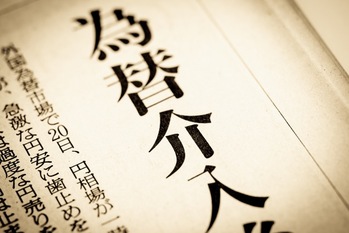 為替介入
外国為替市場で20日、円相場が一
急激な円安に歯止めを
過度な円売り